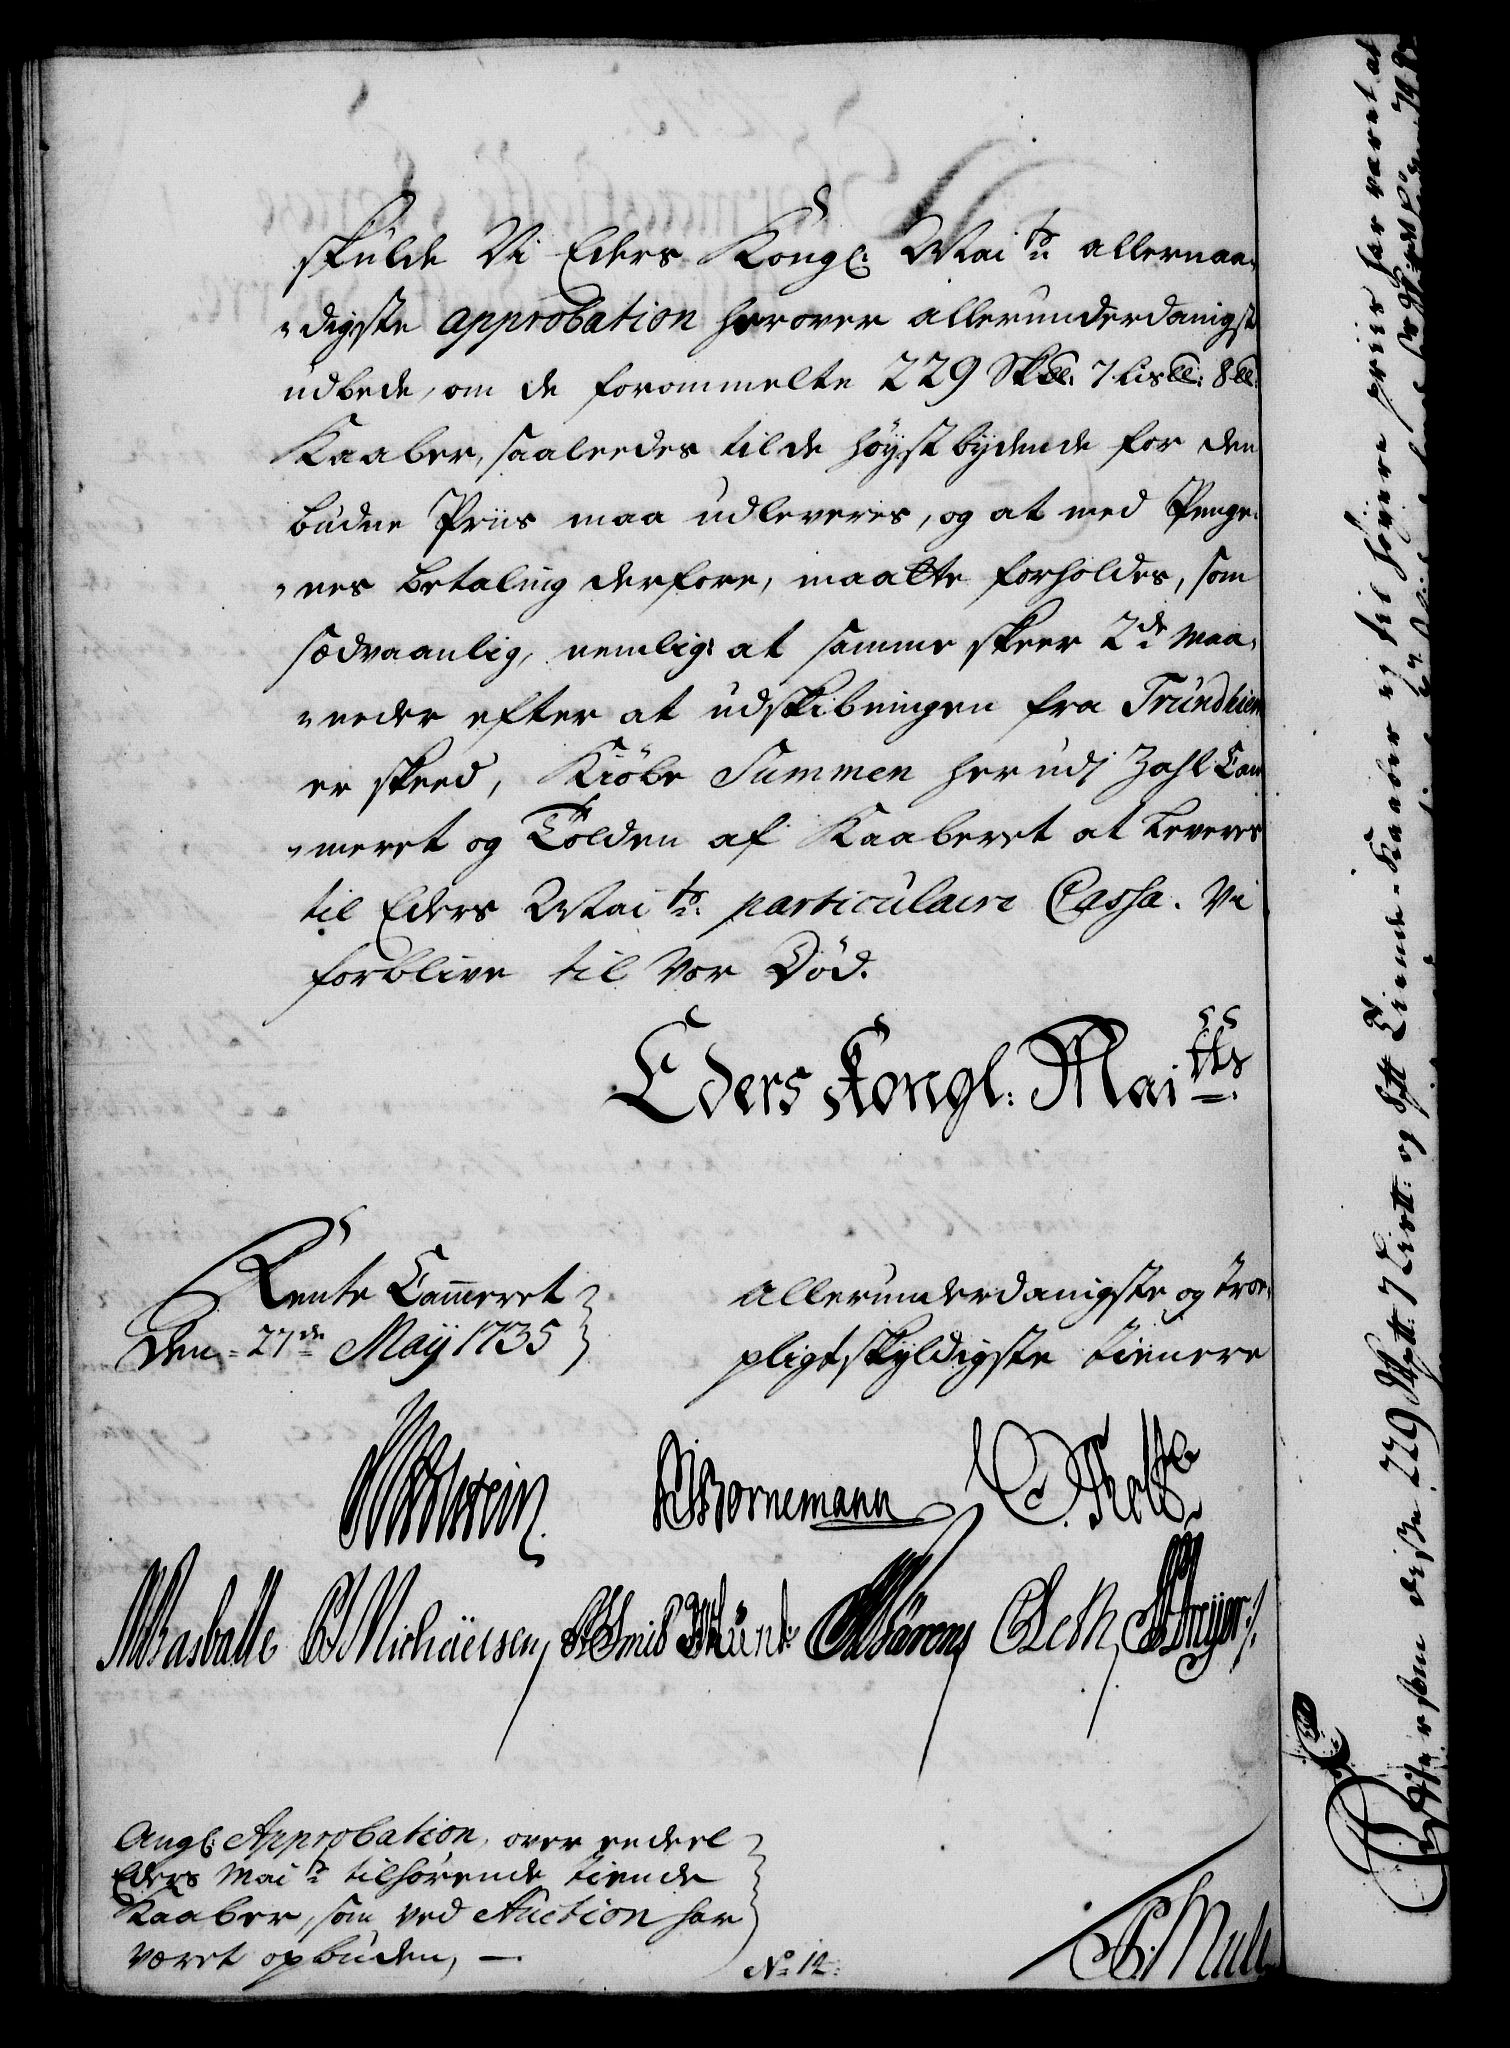 skulde Vi Eders Kongl: Mai ts: allernaa-
digste approbation herover allerunderdanigst
udbede, om de forommelte 229 Sk℔: 7 Lis℔: 8 ℔:
Kaaber, saaleedes til de höyst bydende for den
budne Priis maa udleveres, og at med Penge-
nes betaling derfore, maatte forholdes, som
sædvaanlig, nemlig: at samme skeer 2de Maa-
neder efter at udskibningen fra Trundhiem
er skeed, Kiöbe Summen her udj Zahl Cam-
meret og Tolden af Kaaberet at leveres
til Eders Mai ts: particulaire Cassa. Vi
forblive til vor Död.
Eders Kongl: Mai tts
Rente Cammeret
Den 27de Maij 1735
allerunderdanigste og troe-
pligtskyldigste tienere
Bornemann
C. Holst
Michäelsen
Angl: Approbation, over endeel
Eders Mai ts tilhörende tiende
Kaaber, som ved Auction har
været opbuden, —
No 12:
disse 229 Sk℔: 7 Lis℔: og 8 ℔ Tiende-Kaaber ej til höyere priis har været at